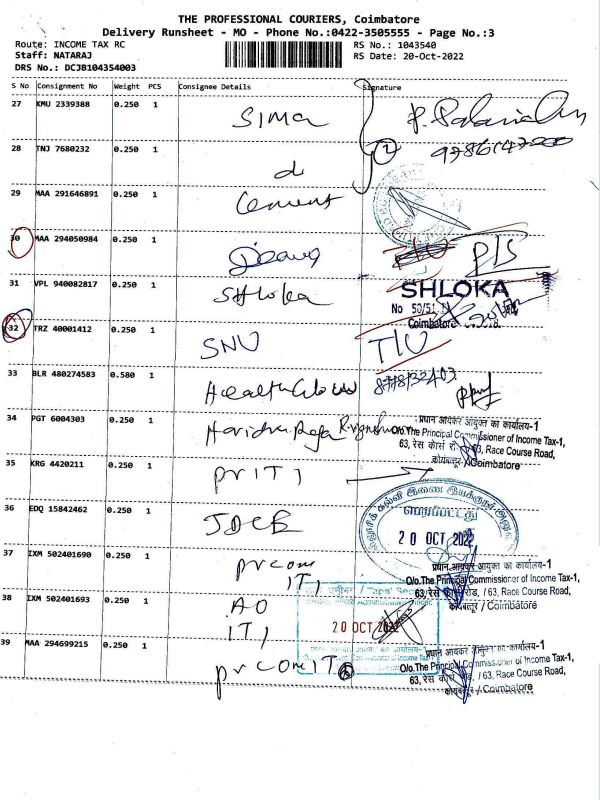 THE PROFESSIONAL COURIERS, Coimbatore
Delivery Runsheet - MO - Phone No.:0422-3505555 - Page No.:3
Route: INCOME TAX RC
RS No.: 1043540
Staff: NATARAJ
RS Date: 20-Oct-2022
DRS No.: DCJB104354003
S No Consignment No Weight PCS Consignee Details Signature
27 KMU 2339388 0.250 1 SIMA
28 TNJ 7680232 0.250 1 d 2
29 MAA 291646891 0.250 1 Cement
30 MAA 294050984 0.250 1 P/S
31 VPL 940082817 0.250 1 SHloka SHLOKA
No 50/51
Coimbatore
32 TRZ 40001412 0.250 1 SNV T/U
33 BLR 480274583 0.580 1
34 PGT 6004303 0.250 1 प्रधान आयकर आयुक्त का कार्यालय-1
O/o.The Principal Commissioner of Income Tax-1,
63, Race Course Road,
कोयम्बटूर / Coimbatore
35 KRG 4420211 0.250 1 Pr IT 1
36 EDQ 15842462 0.250 1 JDCE
20 OCT 2022
37 IXM 502401690 0.250 1 prcom IT 1 प्रधान आयकर आयुक्त का कार्यालय-1
O/o.The Principal Commissioner of Income Tax-1,
63, रेस कोर्स रोड, / 63, Race Course Road,
कोयम्बटूर / Coimbatore
38 IXM 502401693 0.250 1 AO IT 1
20 OCT 2022
39 MAA 294699215 0.250 1 prcom IT प्रधान आयकर आयुक्त का कार्यालय-1
O/o.The Principal Commissioner of Income Tax-1,
63, / 63, Race Course Road,
कोयम्बटूर / Coimbatore